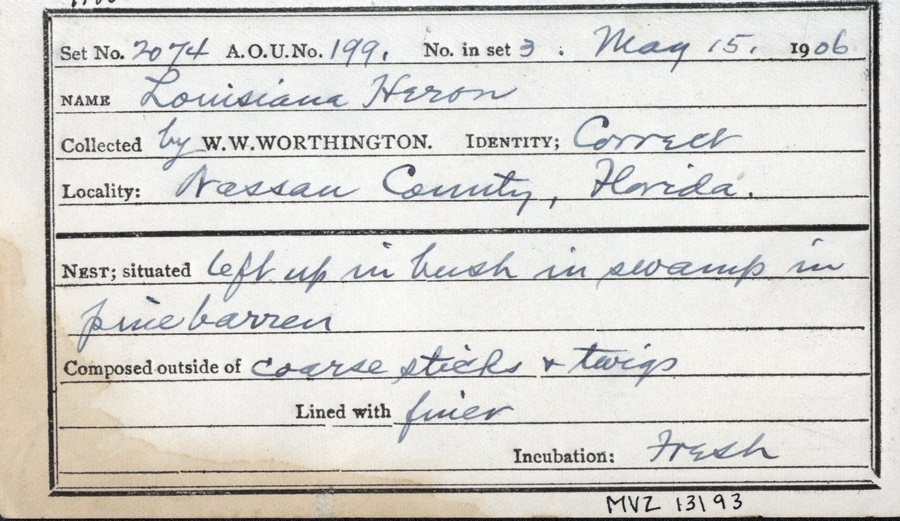 Set No. 2074 A.O.U.No. 199. No. in set 3 . May 15. 1906
NAME Louisiana Heron
Collected by W.W.WORTHINGTON. IDENTITY; Correct
Locality: Nassau County, Florida.
NEST; situated left up in bush in swamp in
pine barren
Composed outside of coarse sticks & twigs
Lined with finer
Incubation: Fresh
MVZ 13193